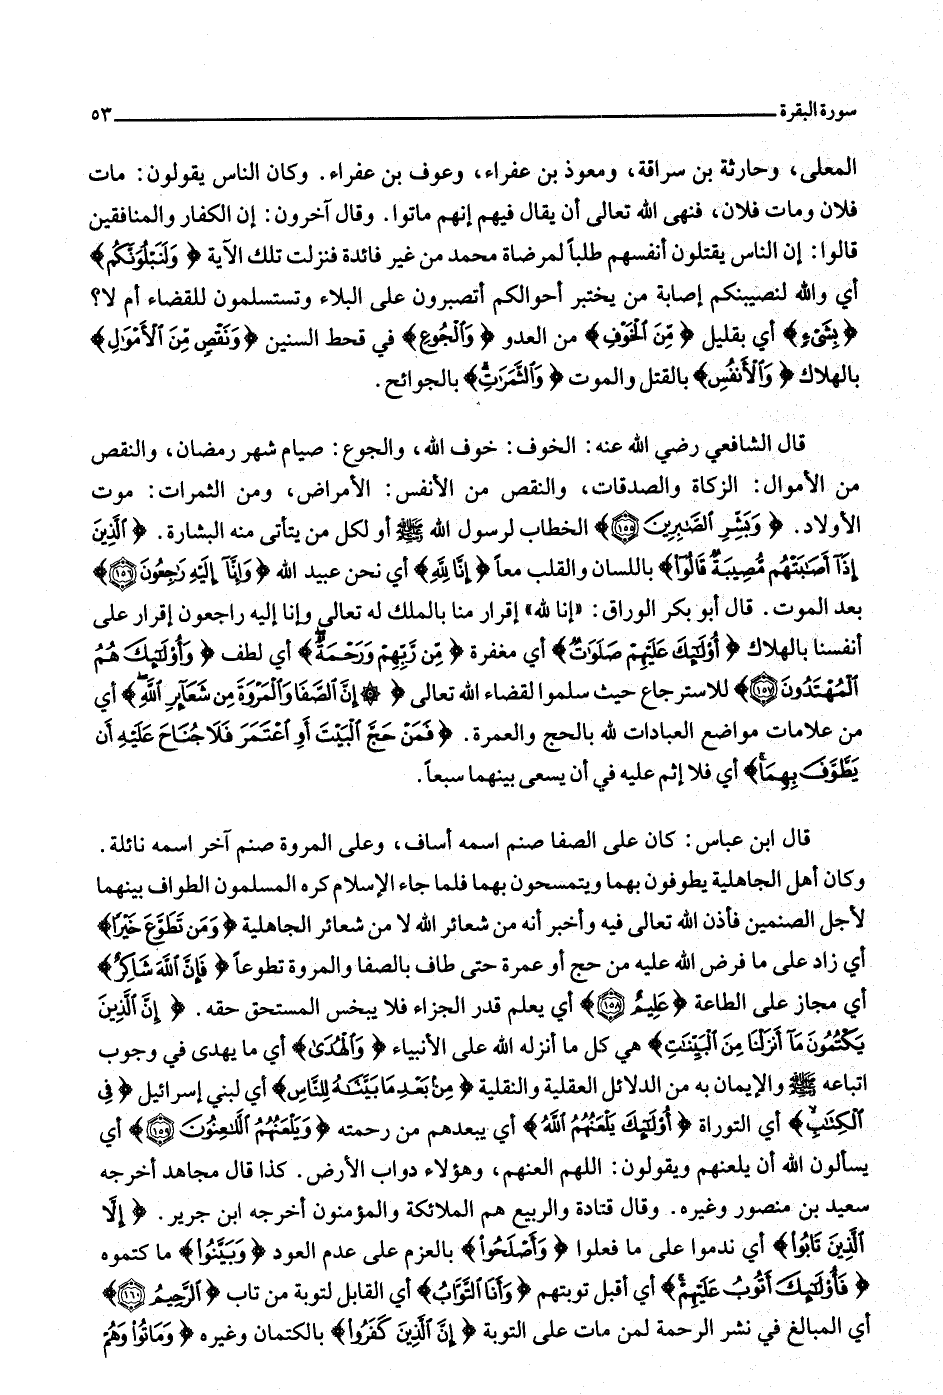 سورة البقرة ٥٣
المعلى، وحارثة بن سراقة، ومعوذ بن عفراء، وعوف بن عفراء. وكان الناس يقولون: مات
فلان ومات فلان، فنهى الله تعالى أن يقال فيهم إنهم ماتوا. وقال آخرون: إن الكفار والمنافقين
قالوا: إن الناس يقتلون أنفسهم طلباً لمرضاة محمد من غير فائدة فنزلت تلك الآية ﴿ وَلَنَبْلُوَنَّكُم ﴾
أي والله لنصيبنكم إصابة من يختبر أحوالكم أتصبرون على البلاء وتستسلمون للقضاء أم لا؟
﴿ بِشَىْءٍ ﴾ أي بقليل ﴿ مِّنَ ٱلْخَوْفِ ﴾ من العدو ﴿ وَٱلْجُوعِ ﴾ في قحط السنين ﴿ وَنَقْصٍ مِّنَ ٱلْأَمْوَٰلِ ﴾
بالهلاك ﴿ وَٱلْأَنفُسِ ﴾ بالقتل والموت ﴿ وَٱلثَّمَرَٰتِۗ ﴾ بالجوائح.
قال الشافعي رضي الله عنه: الخوف: خوف الله، والجوع: صيام شهر رمضان، والنقص
من الأموال: الزكاة والصدقات، والنقص من الأنفس: الأمراض، ومن الثمرات: موت
الأولاد. ﴿ وَبَشِّرِ ٱلصَّٰبِرِينَ ١٥٥ ﴾ الخطاب لرسول الله ﷺ أو لكل من يتأتى منه البشارة. ﴿ ٱلَّذِينَ
إِذَآ أَصَٰبَتْهُم مُّصِيبَةٌ قَالُوٓا۟ ﴾ باللسان والقلب معاً ﴿ إِنَّا لِلَّهِ ﴾ أي نحن عبيد الله ﴿ وَإِنَّآ إِلَيْهِ رَٰجِعُونَ ١٥٦ ﴾
بعد الموت. قال أبو بكر الوراق: «إنا لله» إقرار منا بالملك له تعالى وإنا إليه راجعون إقرار على
أنفسنا بالهلاك ﴿ أُو۟لَٰٓئِكَ عَلَيْهِمْ صَلَوَٰتٌ ﴾ أي مغفرة ﴿ مِّن رَّبِّهِمْ وَرَحْمَةٌۖ ﴾ أي لطف ﴿ وَأُو۟لَٰٓئِكَ هُمُ
ٱلْمُهْتَدُونَ ١٥٧ ﴾ للاسترجاع حيث سلموا لقضاء الله تعالى ﴿ ۞ إِنَّ ٱلصَّفَا وَٱلْمَرْوَةَ مِن شَعَآئِرِ ٱللَّهِۖ ﴾ أي
من علامات مواضع العبادات لله بالحج والعمرة. ﴿ فَمَنْ حَجَّ ٱلْبَيْتَ أَوِ ٱعْتَمَرَ فَلَا جُنَاحَ عَلَيْهِ أَن
يَطَّوَّفَ بِهِمَاۚ ﴾ أي فلا إثم عليه في أن يسعى بينهما سبعاً.
قال ابن عباس: كان على الصفا صنم اسمه أساف، وعلى المروة صنم آخر اسمه نائلة.
وكان أهل الجاهلية يطوفون بهما ويتمسحون بهما فلما جاء الإسلام كره المسلمون الطواف بينهما
لأجل الصنمين فأذن الله تعالى فيه وأخبر أنه من شعائر الله لا من شعائر الجاهلية ﴿ وَمَن تَطَوَّعَ خَيْرًا ﴾
أي زاد على ما فرض الله عليه من حج أو عمرة حتى طاف بالصفا والمروة تطوعاً ﴿ فَإِنَّ ٱللَّهَ شَاكِرٌ ﴾
أي مجاز على الطاعة ﴿ عَلِيمٌ ١٥٨ ﴾ أي يعلم قدر الجزاء فلا يبخس المستحق حقه. ﴿ إِنَّ ٱلَّذِينَ
يَكْتُمُونَ مَآ أَنزَلْنَا مِنَ ٱلْبَيِّنَٰتِ ﴾ هي كل ما أنزله الله على الأنبياء ﴿ وَٱلْهُدَىٰ ﴾ أي ما يهدى في وجوب
اتباعه ﷺ والإيمان به من الدلائل العقلية والنقلية ﴿ مِنۢ بَعْدِ مَا بَيَّنَّٰهُ لِلنَّاسِ ﴾ أي لبني إسرائيل ﴿ فِى
ٱلْكِتَٰبِۙ ﴾ أي التوراة ﴿ أُو۟لَٰٓئِكَ يَلْعَنُهُمُ ٱللَّهُ ﴾ أي يبعدهم من رحمته ﴿ وَيَلْعَنُهُمُ ٱللَّٰعِنُونَ ١٥٩ ﴾ أي
يسألون الله أن يلعنهم ويقولون: اللهم العنهم، وهؤلاء دواب الأرض. كذا قال مجاهد أخرجه
سعيد بن منصور وغيره. وقال قتادة والربيع هم الملائكة والمؤمنون أخرجه ابن جرير. ﴿ إِلَّا
ٱلَّذِينَ تَابُوا۟ ﴾ أي ندموا على ما فعلوا ﴿ وَأَصْلَحُوا۟ ﴾ بالعزم على عدم العود ﴿ وَبَيَّنُوا۟ ﴾ ما كتموه
﴿ فَأُو۟لَٰٓئِكَ أَتُوبُ عَلَيْهِمْۚ ﴾ أي أقبل توبتهم ﴿ وَأَنَا ٱلتَّوَّابُ ﴾ أي القابل لتوبة من تاب ﴿ ٱلرَّحِيمُ ١٦٠ ﴾
أي المبالغ في نشر الرحمة لمن مات على التوبة ﴿ إِنَّ ٱلَّذِينَ كَفَرُوا۟ ﴾ بالكتمان وغيره ﴿ وَمَاتُوا۟ وَهُمْ